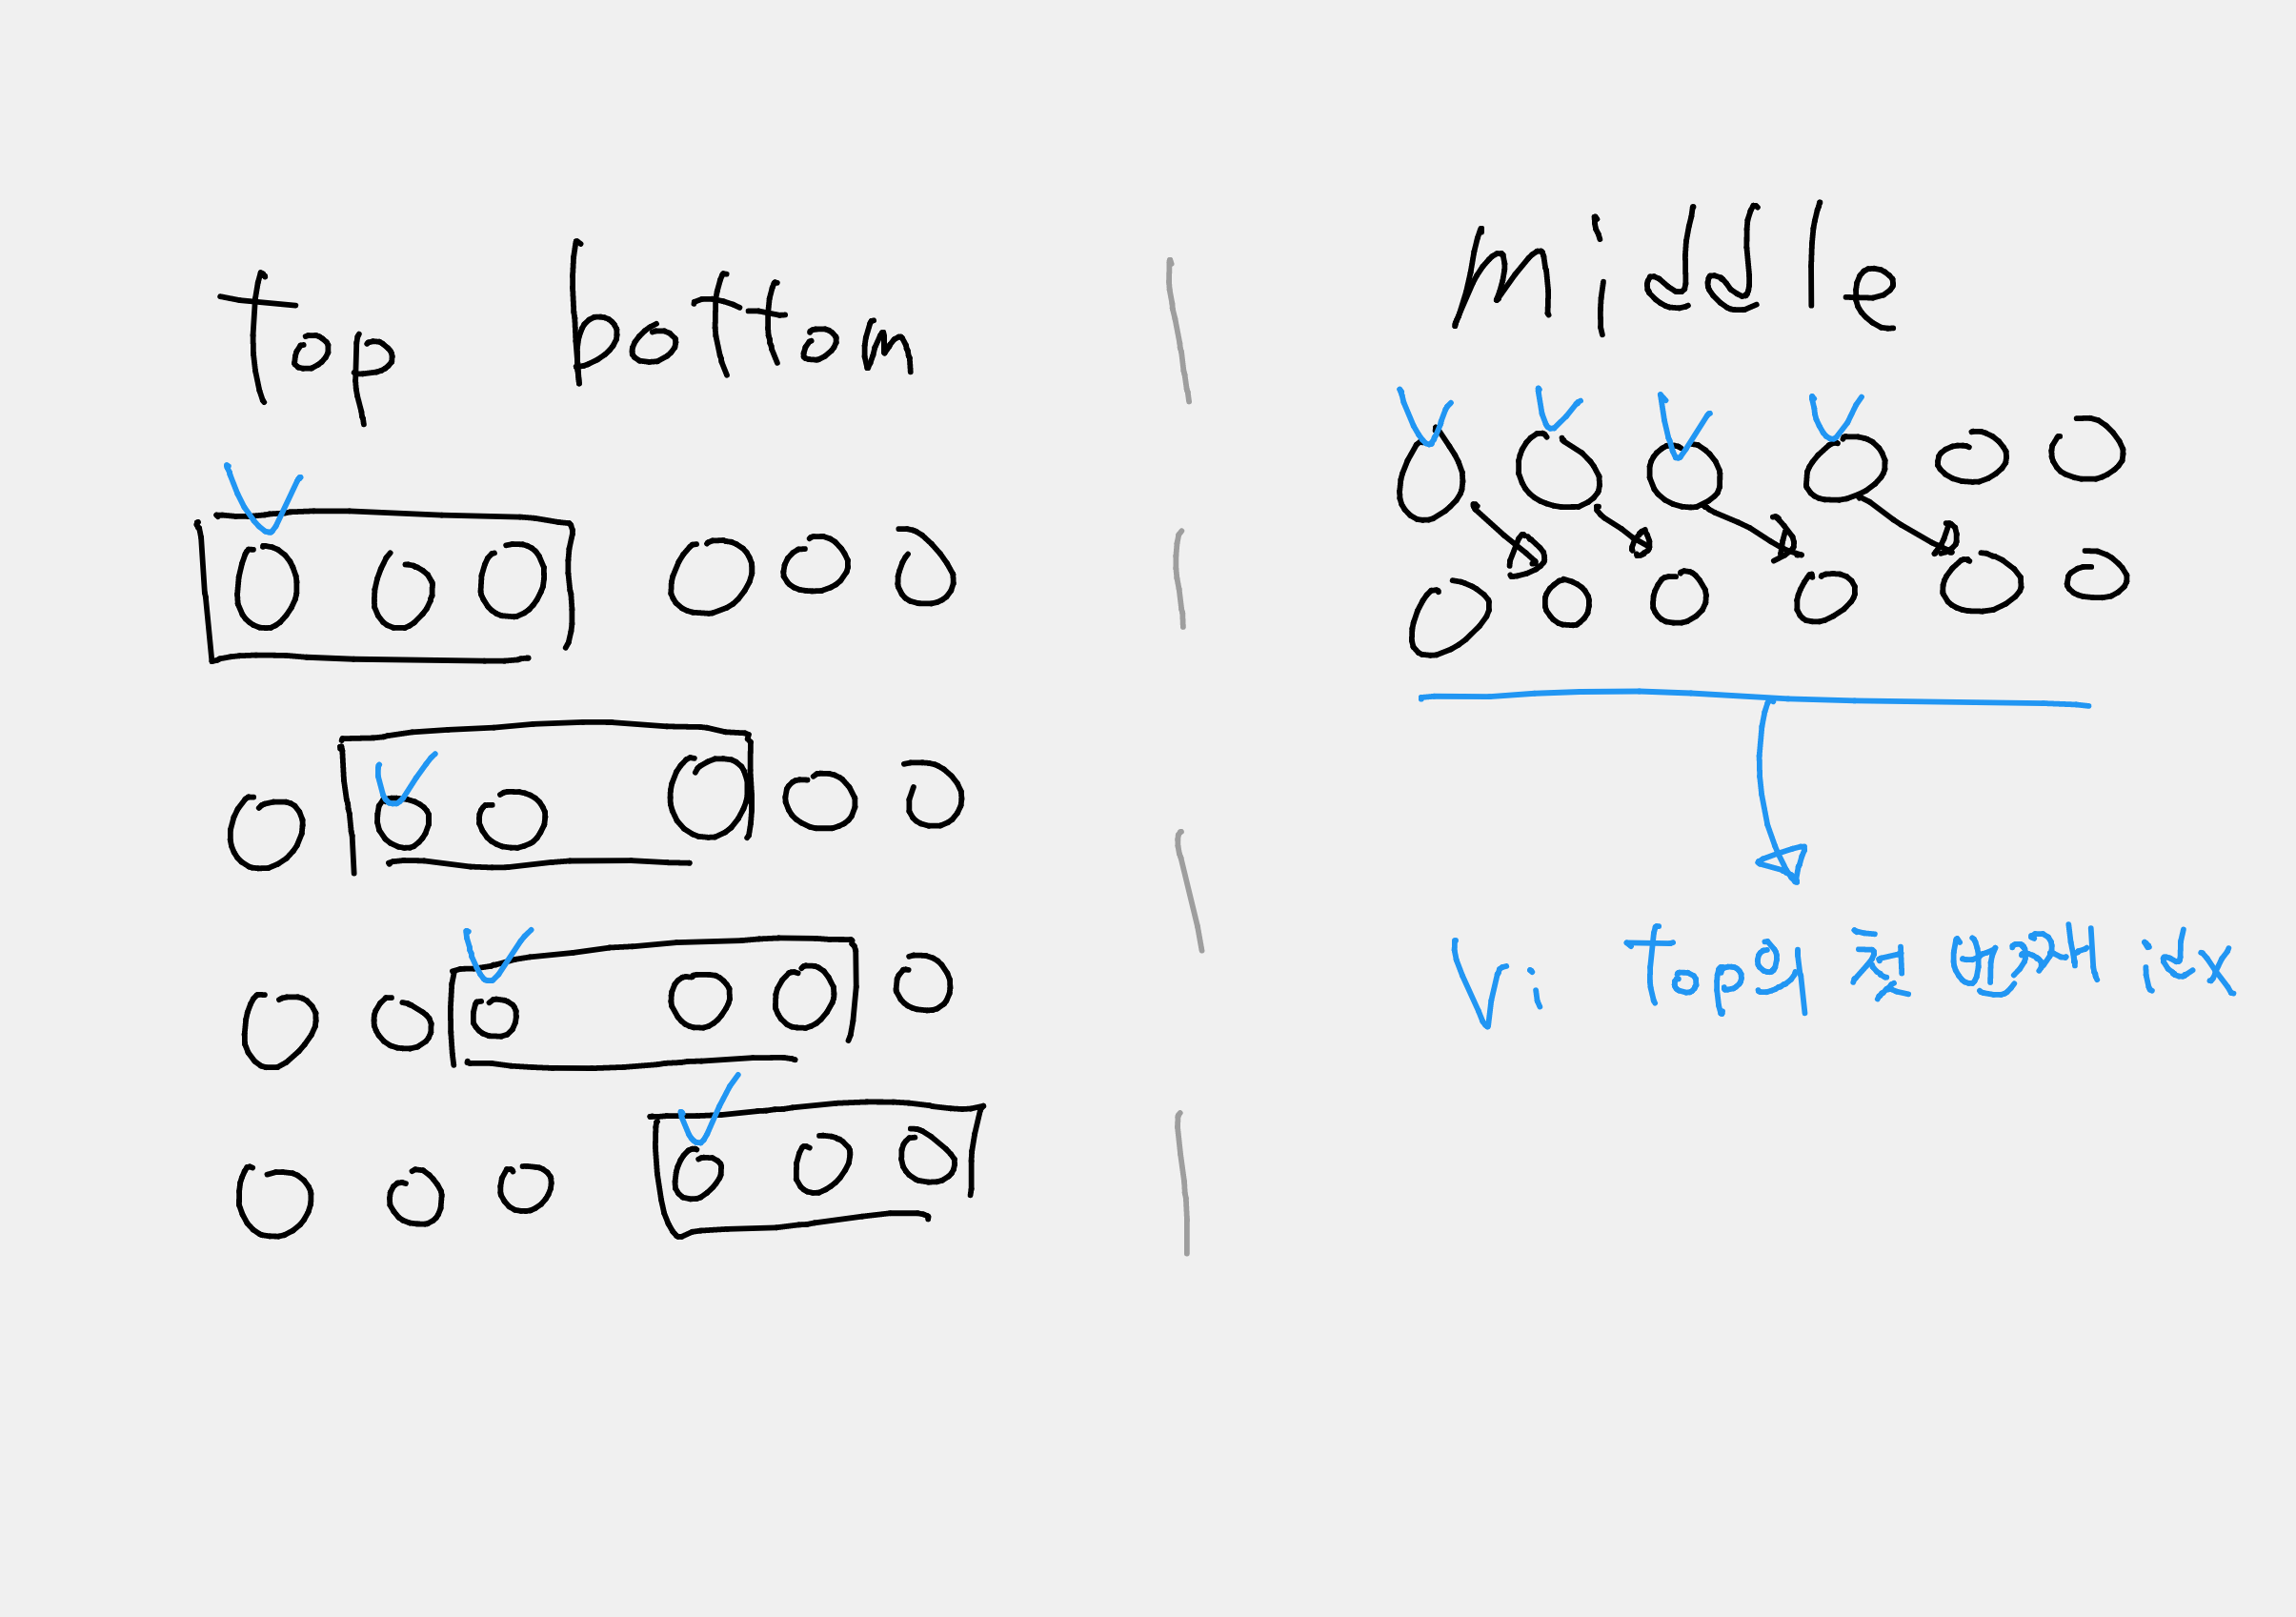 top bottom
middle
Vi Top의 첫 번째 idx